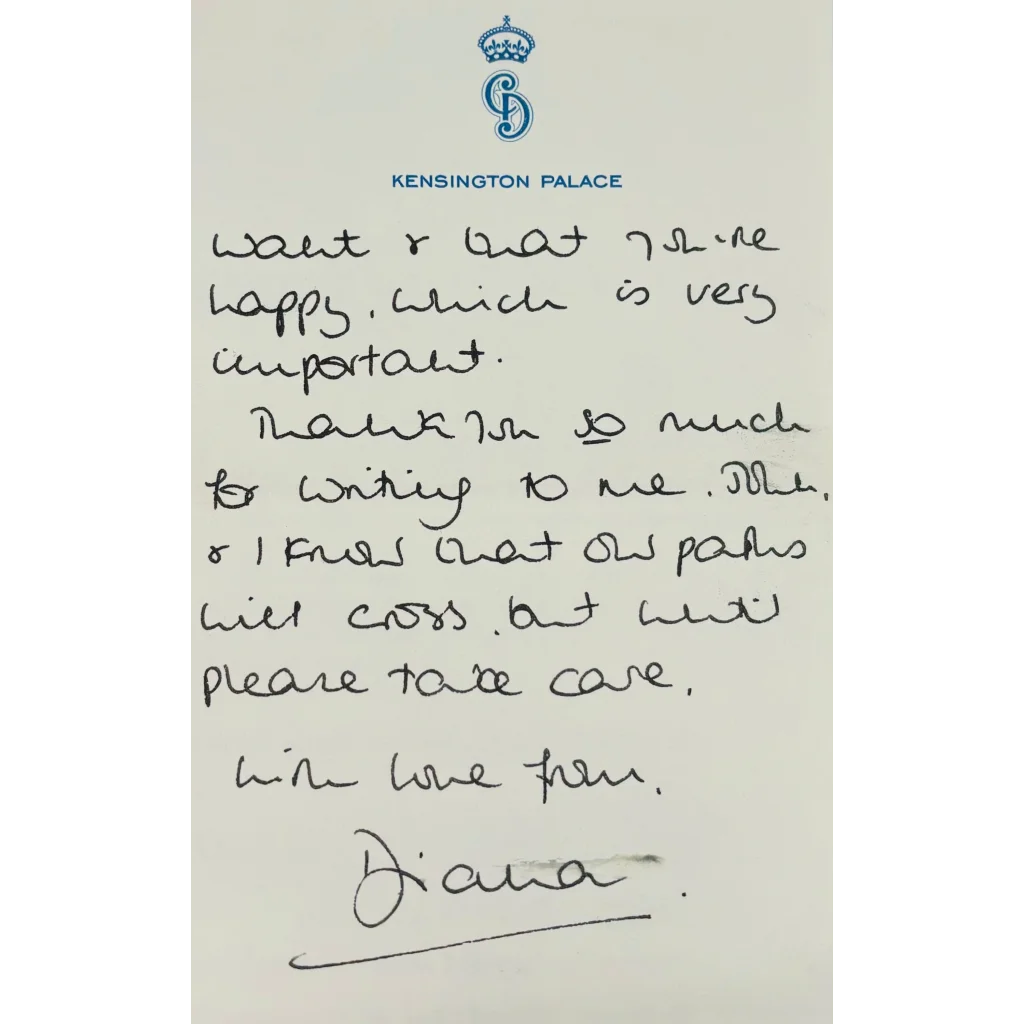 CD
KENSINGTON PALACE
want & that you're
happy, which is very
important.
Thank you so much
for writing to me.
& I know that our paths
will cross, but until
please take care,
With love from,
Diana.